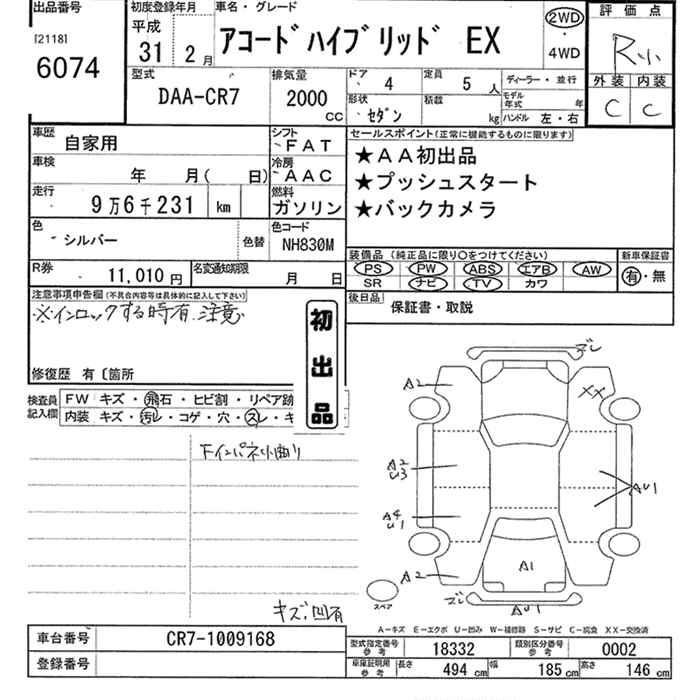 出品番号
[2118]
6074
初度登録年月
平成
31 2月
車名・グレード
アコードハイブリッド EX
2WD
・
4WD
評価点
R小
外装 内装
C C
型式
DAA-CR7
排気量
2000
CC
ドア
4
定員
5 人
ディーラー・並行
形状
セダン
積載
kg
モデル年式 年
ハンドル 左・右
車歴
自家用
シフト
FAT
車検
年 月( 日)
冷房
AAC
走行
9万6千231 km
燃料
ガソリン
色
シルバー
色替
色コード
NH830M
R券
11,010 円
名変通知期限
月 日
セールスポイント(正常に機能するものに限ります)
★AA初出品
★プッシュスタート
★バックカメラ
装備品 (純正品に限り○をつけてください)
新車保証書
PS PW ABS エアB AW
SR ナビ TV カワ
有・無
後日品
保証書・取説
注意事項申告欄 (不具合内容等は具体的に記入して下さい)
※インロックする時有 注意
修復歴 有 〔箇所
初出品
検査員記入欄
FW キズ・飛石・ヒビ割・リペア跡
内装 キズ・汚レ・コゲ・穴・スレ・キ
Fインパネ小曲り
キズ、凹有
ズレ
A2
XX
A2
U3
AU1
A4
U1
A1
A2
ズレ
AU1
スペア
A-キズ E-エクボ U-凹み W-補修跡 S-サビ C-腐食 XX-交換済
車台番号
CR7-1009168
登録番号
型式指定番号
参考
18332
類別区分番号
参考
0002
車庫証明用
参考
長さ
494 cm
幅
185 cm
高さ
146 cm